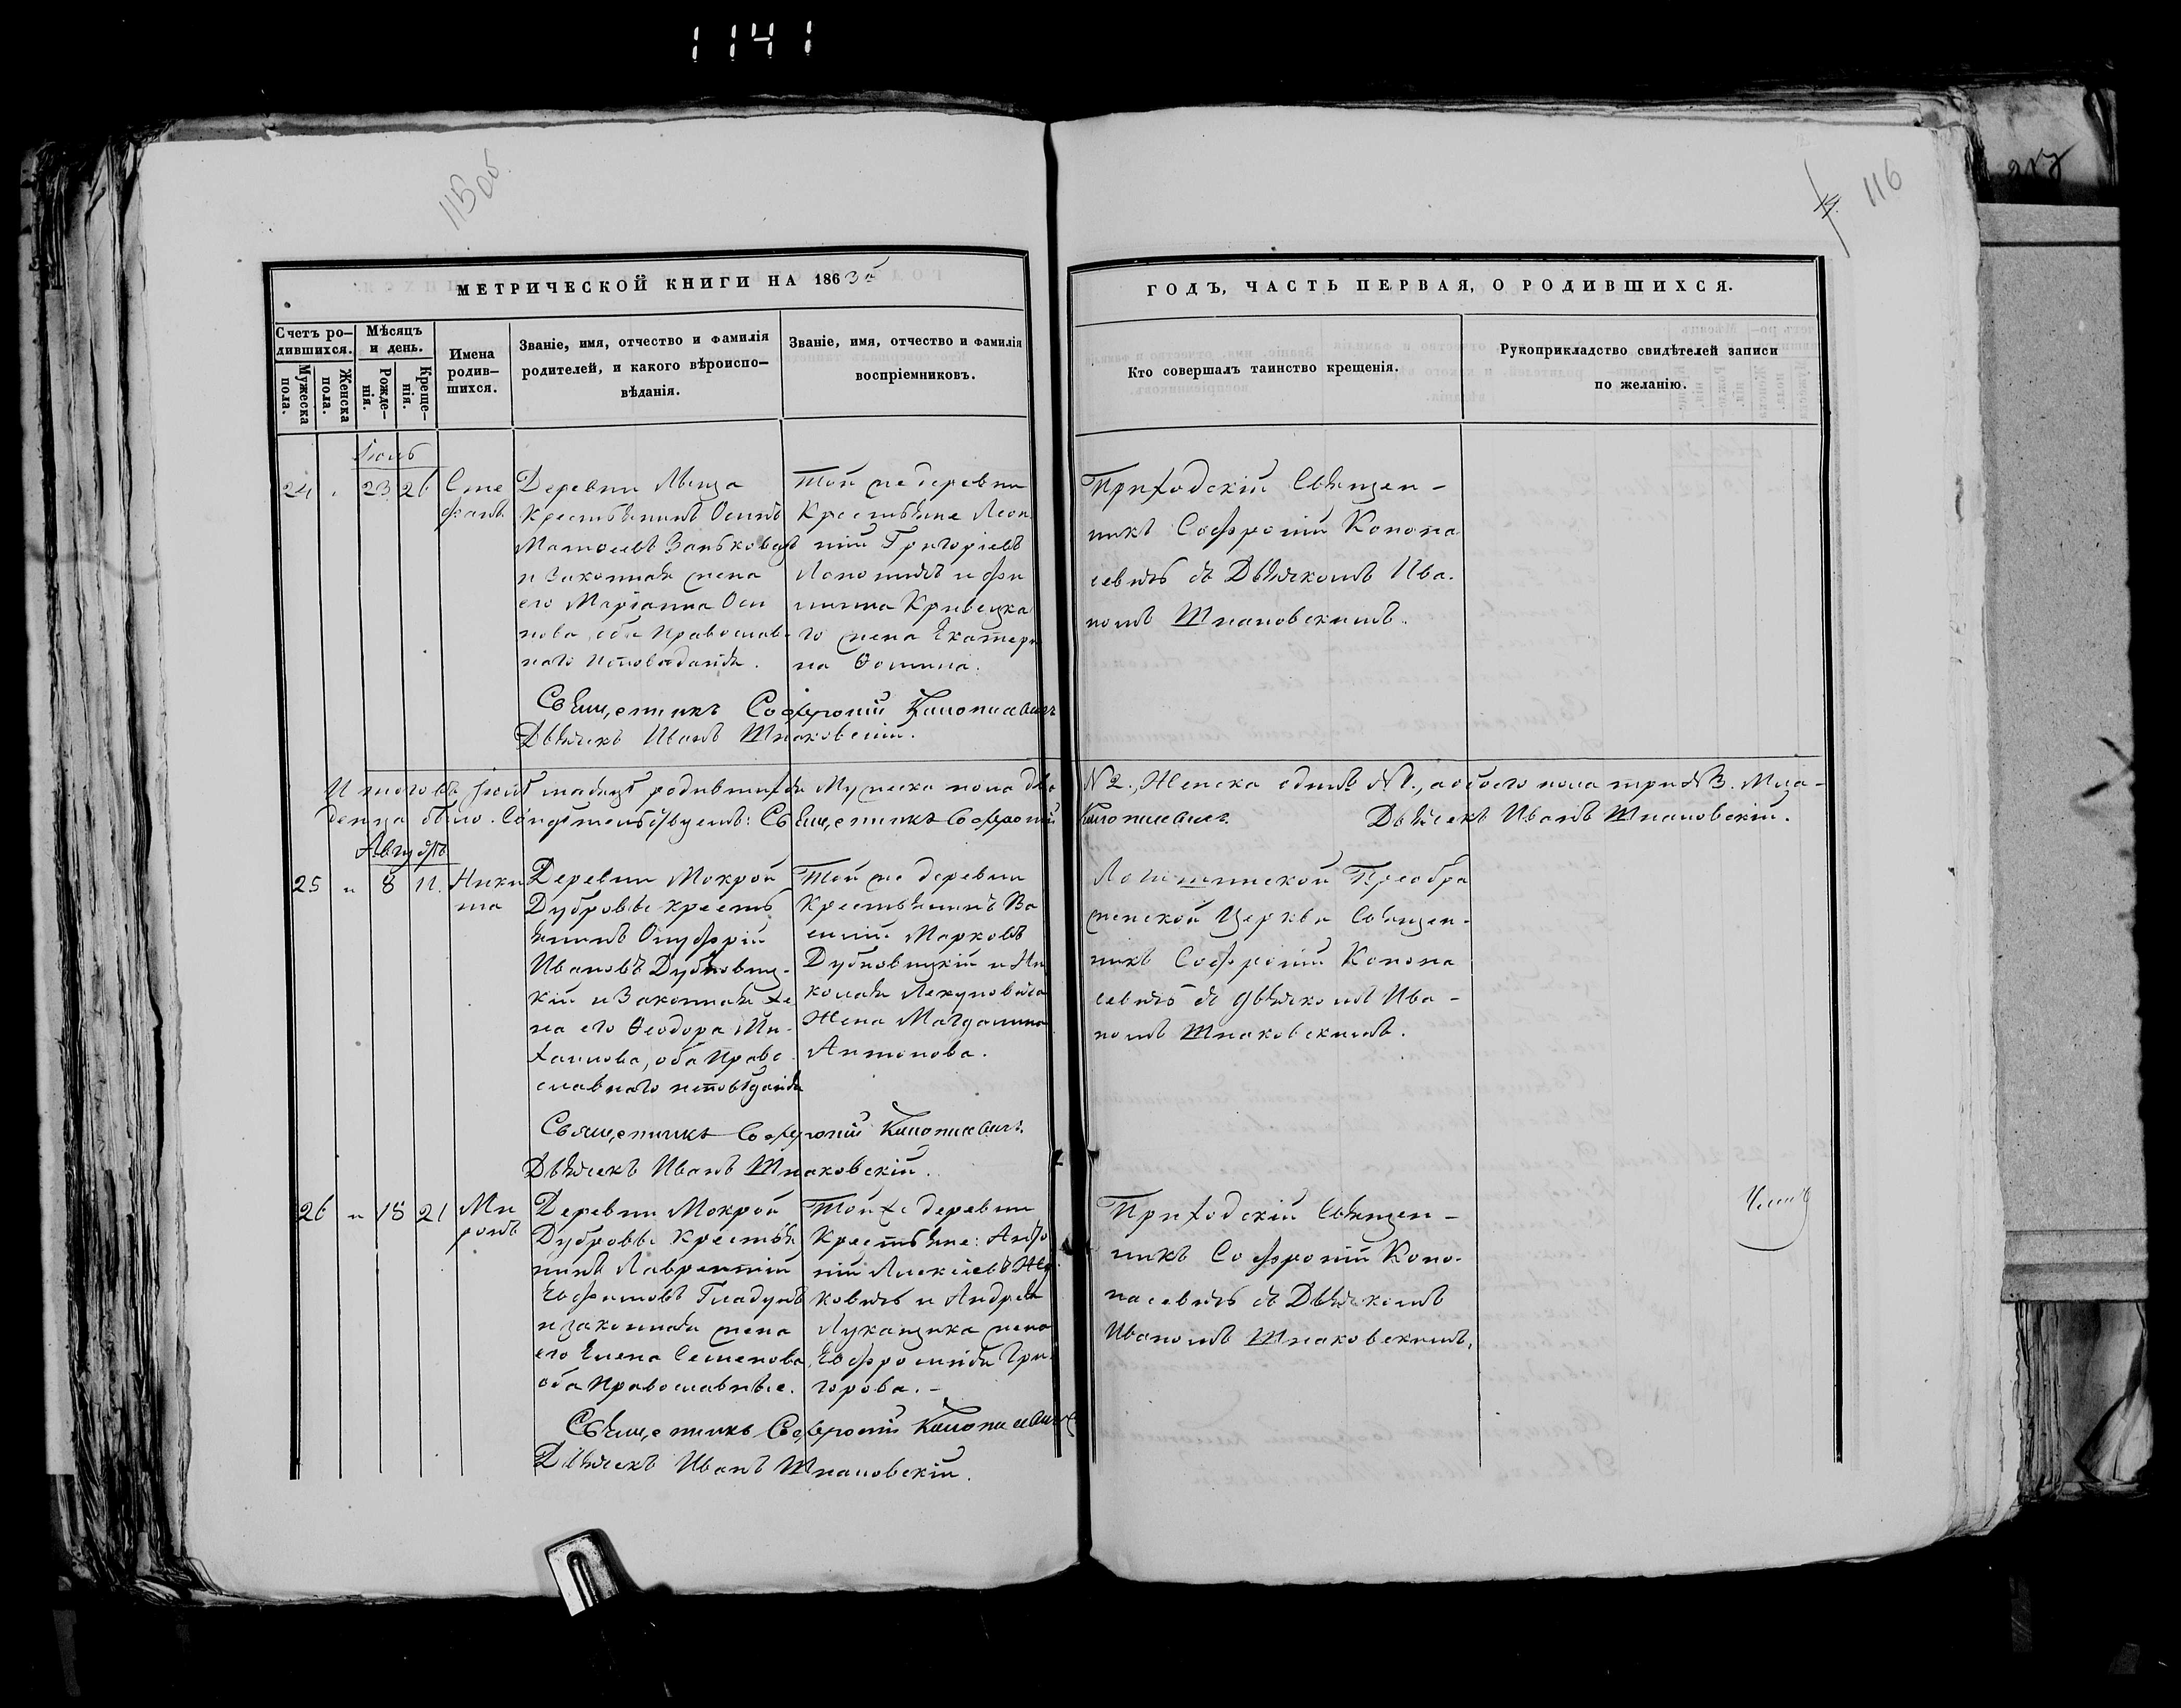 1141
115 об.
116
МЕТРИЧЕСКОЙ КНИГИ НА 1863й
ГОДЪ, ЧАСТЬ ПЕРВАЯ, О РОДИВШИХСЯ.
Счетъ ро-
дившихся.
Мужеска
пола.
Женска
пола.
Мѣсяцъ
и день.
Рожде-
нія.
Креще-
нія.
Имена
родив-
шихся.
Званіе, имя, отчество и фамилія
родителей, и какого вѣроиспо-
вѣданія.
Званіе, имя, отчество и фамилія
воспріемниковъ.
Кто совершалъ таинство крещенія.
Рукоприкладство свидѣтелей записи
по желанію.
24 23 26
Сте
фанъ
Деревни
Крестьянинъ Осипъ
и законная жена
его Маріанна Оси
пова, оба Православ-
наго исповѣданія.
Той же деревни
Крестьяне Леон
тій Григоріевъ
го жена Екатери
на Ѳомина.
Приходскій Священ-
никъ Софроній Конопа
севичь съ Дьячкомъ Ива-
номъ Шпаковскимъ.
Священникъ Софроній Конопасевичъ
Дьячекъ Иванъ Шпаковскій.
Итого въ мѣсяцѣ родившихся Мужеска пола два
№ 2., Женска одинъ № 1., а обоего пола три № 3. Мла-
денца было. Свидѣтельствуемъ: Священникъ Софроній
Конопасевичъ. Дьячекъ Иванъ Шпаковскій.
Августъ
25 8 11.
Ники
та
Деревни Мокрой
Дубровы кресть
янинъ Онуфрій
Ивановъ Дубновиц-
кій и Законная же
на его Ѳеодора Ми-
хаилова, оба Право
славнаго исповѣданія
Той же деревни
Крестьянинъ Ва
силій Марковъ
Дубновицкій и Ни
колая
Жена Магдалина
Антонова.
Преобра
женской Церкви Священ-
никъ Софроній Конопа
севичь съ дьячкомъ Ива-
номъ Шпаковскимъ.
Священникъ Софроній Конопасевичъ.
Дьячекъ Иванъ Шпаковскій.
26 18 21
Ми
ронъ
Деревни Мокрой
Дубровы Крестья
нинъ Лаврентій
Евфимовъ Гладунъ
и законная жена
его Елена Семенова,
оба Православные.
Той же деревни
Крестьяне:
ній Алексіевъ
ковичь и Андрея
Лукащика жена
Евфросинія Гри-
горова.-
Приходскій Священ-
никъ Софроній Коно-
пасевичь съ Дьячкомъ
Иваномъ Шпаковскимъ.
Священникъ Софроній Конопасевичъ
Дьячекъ Иванъ Шпаковскій.